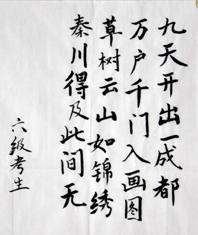 九天开出一成都
万户千门入画图
草树云山如锦绣
秦川得及此间无
六级考生